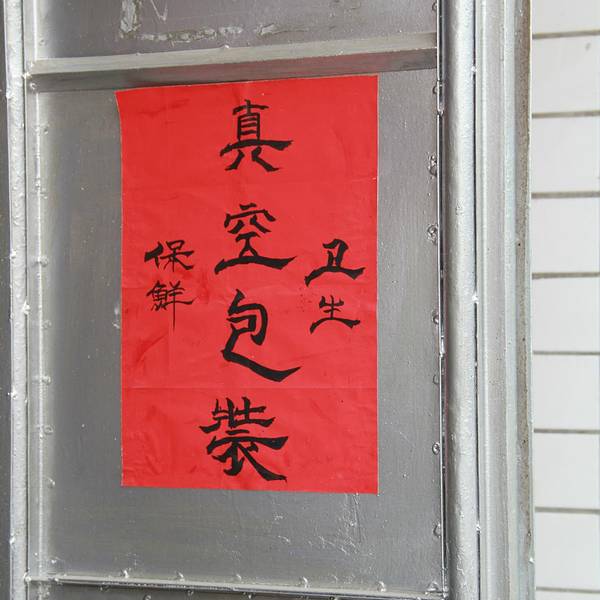 卫生
真空包裝
保鮮